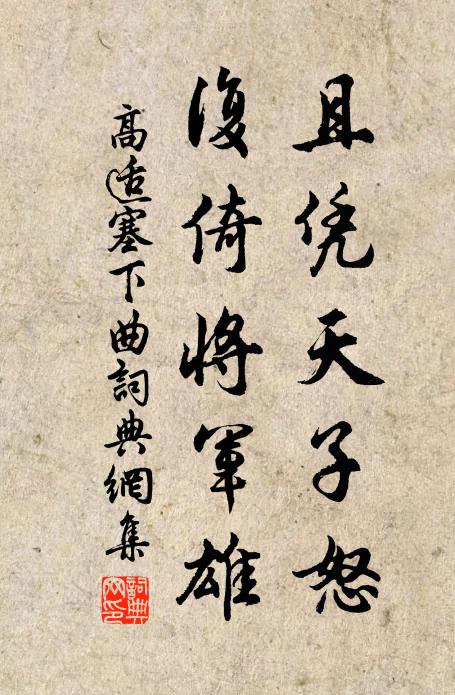 且凭天子怒
復倚將軍雄
高适塞下曲詞典網集
詞典網印